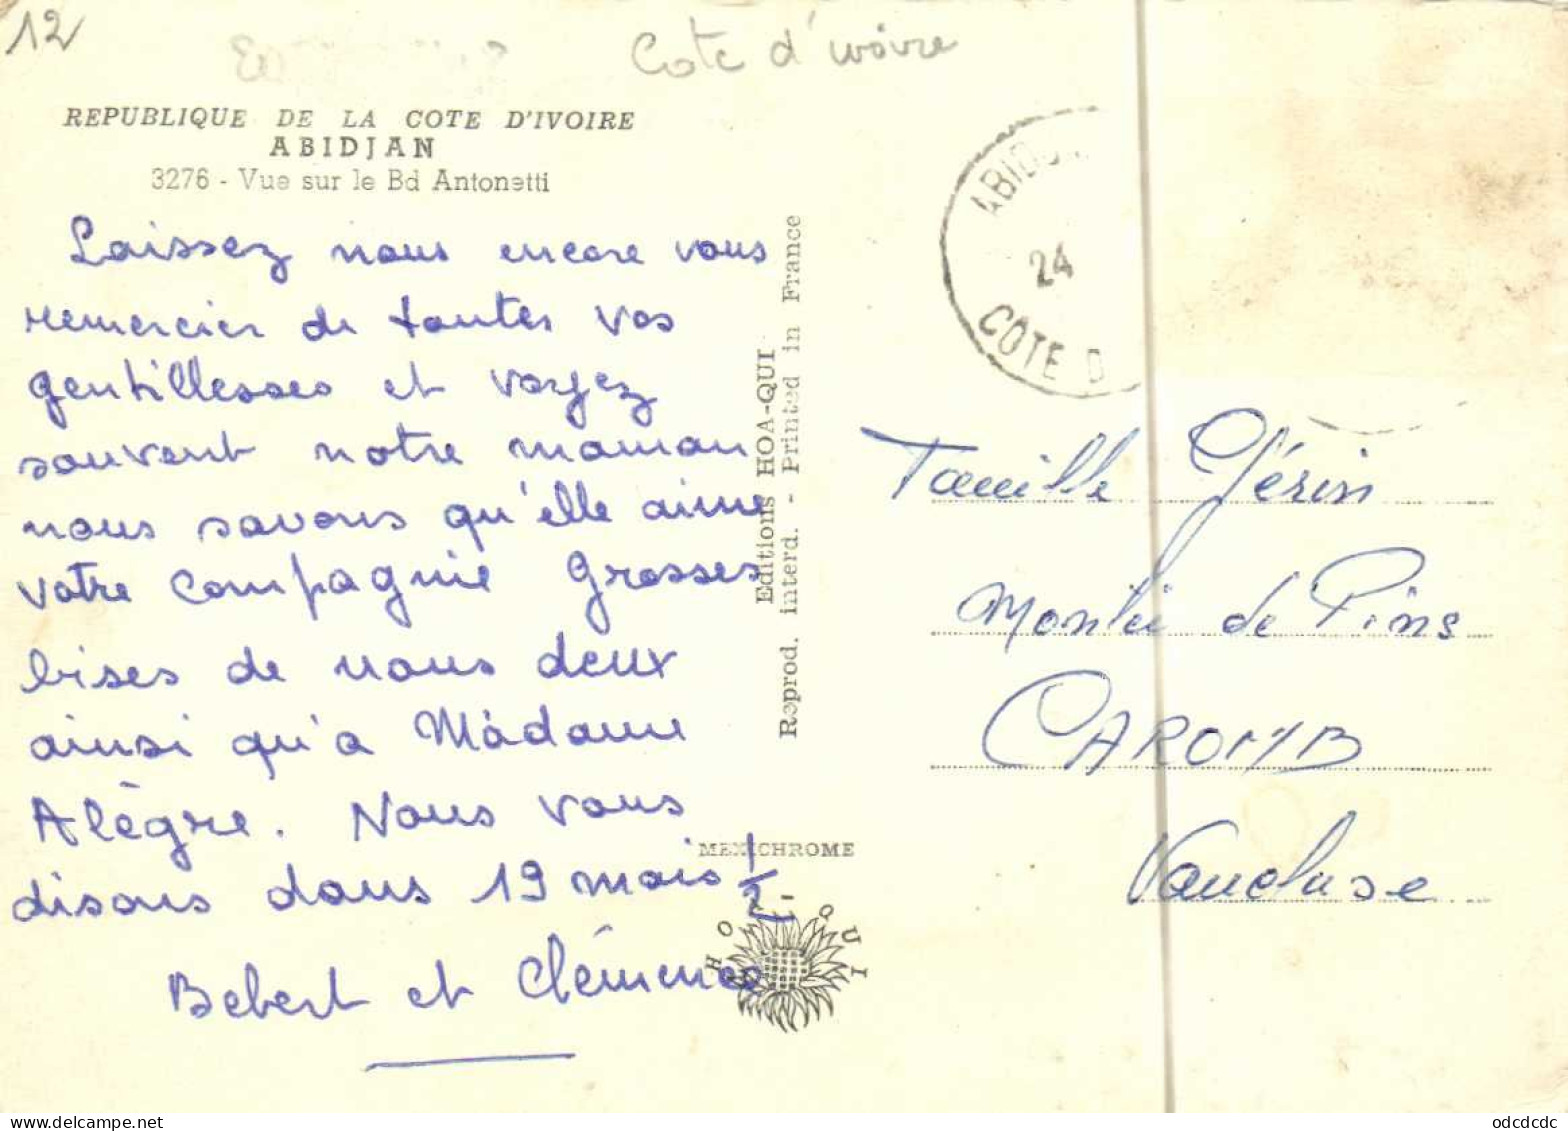 12
Cote d'ivoire
REPUBLIQUE DE LA COTE D'IVOIRE
ABIDJAN
3276 - Vue sur le Bd Antonetti
Laissez nous encore vous
remercier de toutes vos
gentillesses et voyez
souvent notre maman
nous savons qu'elle aime
votre compagnie Grosses
bises de nous deux
ainsi qu'a Madame
Alègre. Nous vous
disons dans 19 mois 1/2
Bebert et Clémence
Editions HOA-QUI
Reprod. interd. - Printed in France
MEXICHROME
HOA-QUI
24
COTE D
Famille Gérin
de Pins
CAROMB
Vaucluse
odcdcdc